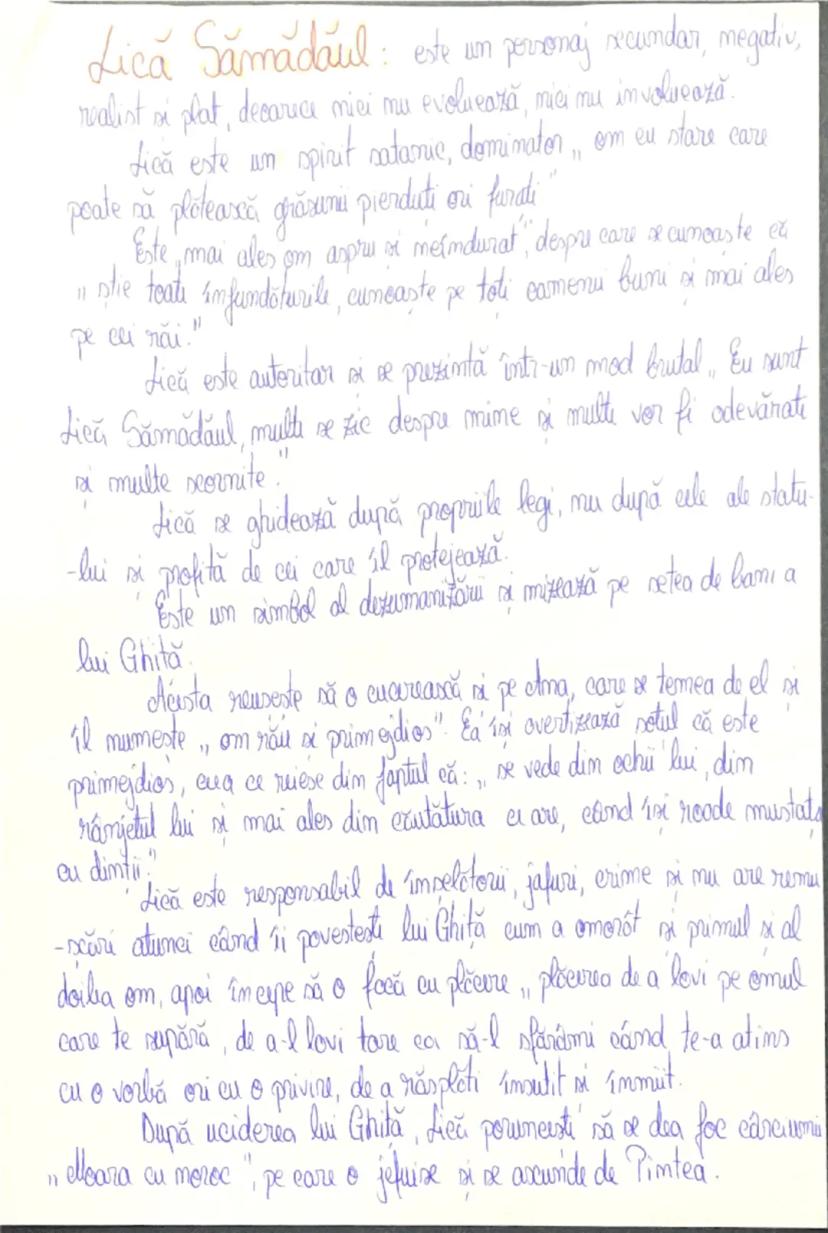 Lică Sămădăul: este un personaj secundar, negativ,
realist și plat, deoarece nici nu evoluează, nici nu involuează.
Lică este un spirit satanic, dominator „ om cu stare care
poate să plătească grăsunii pierduți ori furați"
Este „mai ales om aspru și neîndurat", despre care se cunoaște că
„ știe toate înfundăturile, cunoaște pe toți oamenii buni și mai ales
pe cei răi."
Lică este autoritar și se prezintă într-un mod brutal „ Eu sunt
Lică Sămădăul, multe se zic despre mine și multe vor fi adevărate
și multe scornite."
Lică se ghidează după propriile legi, nu după cele ale statu-
-lui și profită de cei care îl protejează.
Este un simbol al dezumanizării și mizează pe setea de bani a
lui Ghiță.
Acesta reușește să o cucerească și pe Ana, care se temea de el și
îl numește „ om rău și primejdios". Ea își avertizează soțul că este
primejdios, ceea ce reiese din faptul că: „ se vede din ochii lui, din
rânjetul lui și mai ales din căutătura ce are, când își roade mustața
cu dinții."
Lică este responsabil de înșelătorii, jafuri, crime și nu are remu
-șcări atunci când îi povestește lui Ghiță cum a omorât și primul și al
doilea om, apoi începe să o facă cu plăcere „ plăcerea de a lovi pe omul
care te supără, de a-l lovi tare ca să-l sfărâmi când te-a atins
cu o vorbă ori cu o privire, de a răsplăti însutit și înmiit.
După uciderea lui Ghiță, Lică poruncește să se dea foc cârciumii
„ Moara cu noroc", pe care o jefuise și se ascunde de Pintea.